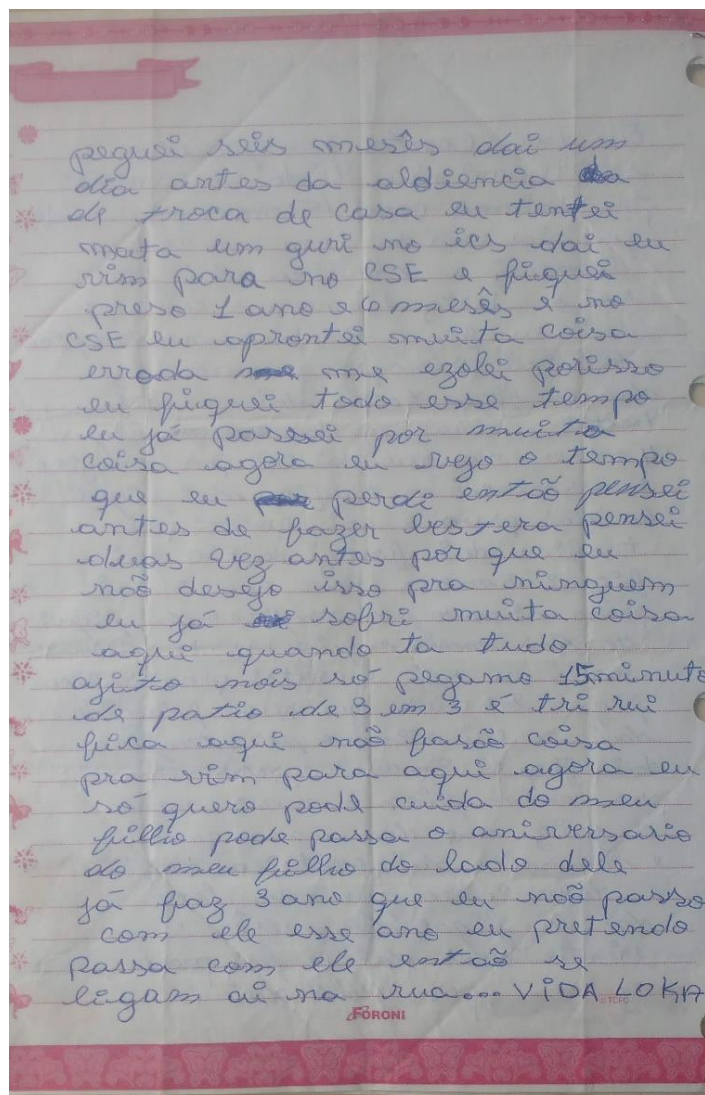 peguei seis mesês dai um
dia antes da aldiencia da
de troca de casa eu tentei
mata um guri no ics dai eu
vim para no CSE e fiquei
preso 1 ano e 6 mesês e no
CSE eu aprontei muita coisa
errada me ezolei porisso
eu fiquei todo esse tempo
eu já passei por muita
coisa agora eu vejo o tempo
que eu perdi entõo pensei
antes de fazer bestera pensei
duas vez antes por que eu
nõo desejo isso pra ninguem
eu já sofri muita coisa
aqui quando ta tudo
ajito nois só pegamo 15 minuto
de patio de 3 em 3 é tri rui
fica aqui nõo fasõo coisa
pra vim para aqui agora eu
só quero pode cuida do meu
filho pode passa o aniversario
do meu filho do lado dele
já faz 3 ano que eu nõo passo
com ele esse ano eu pretendo
passa com ele entõo se
ligam ai na rua... ViDA LOKA
FORONI